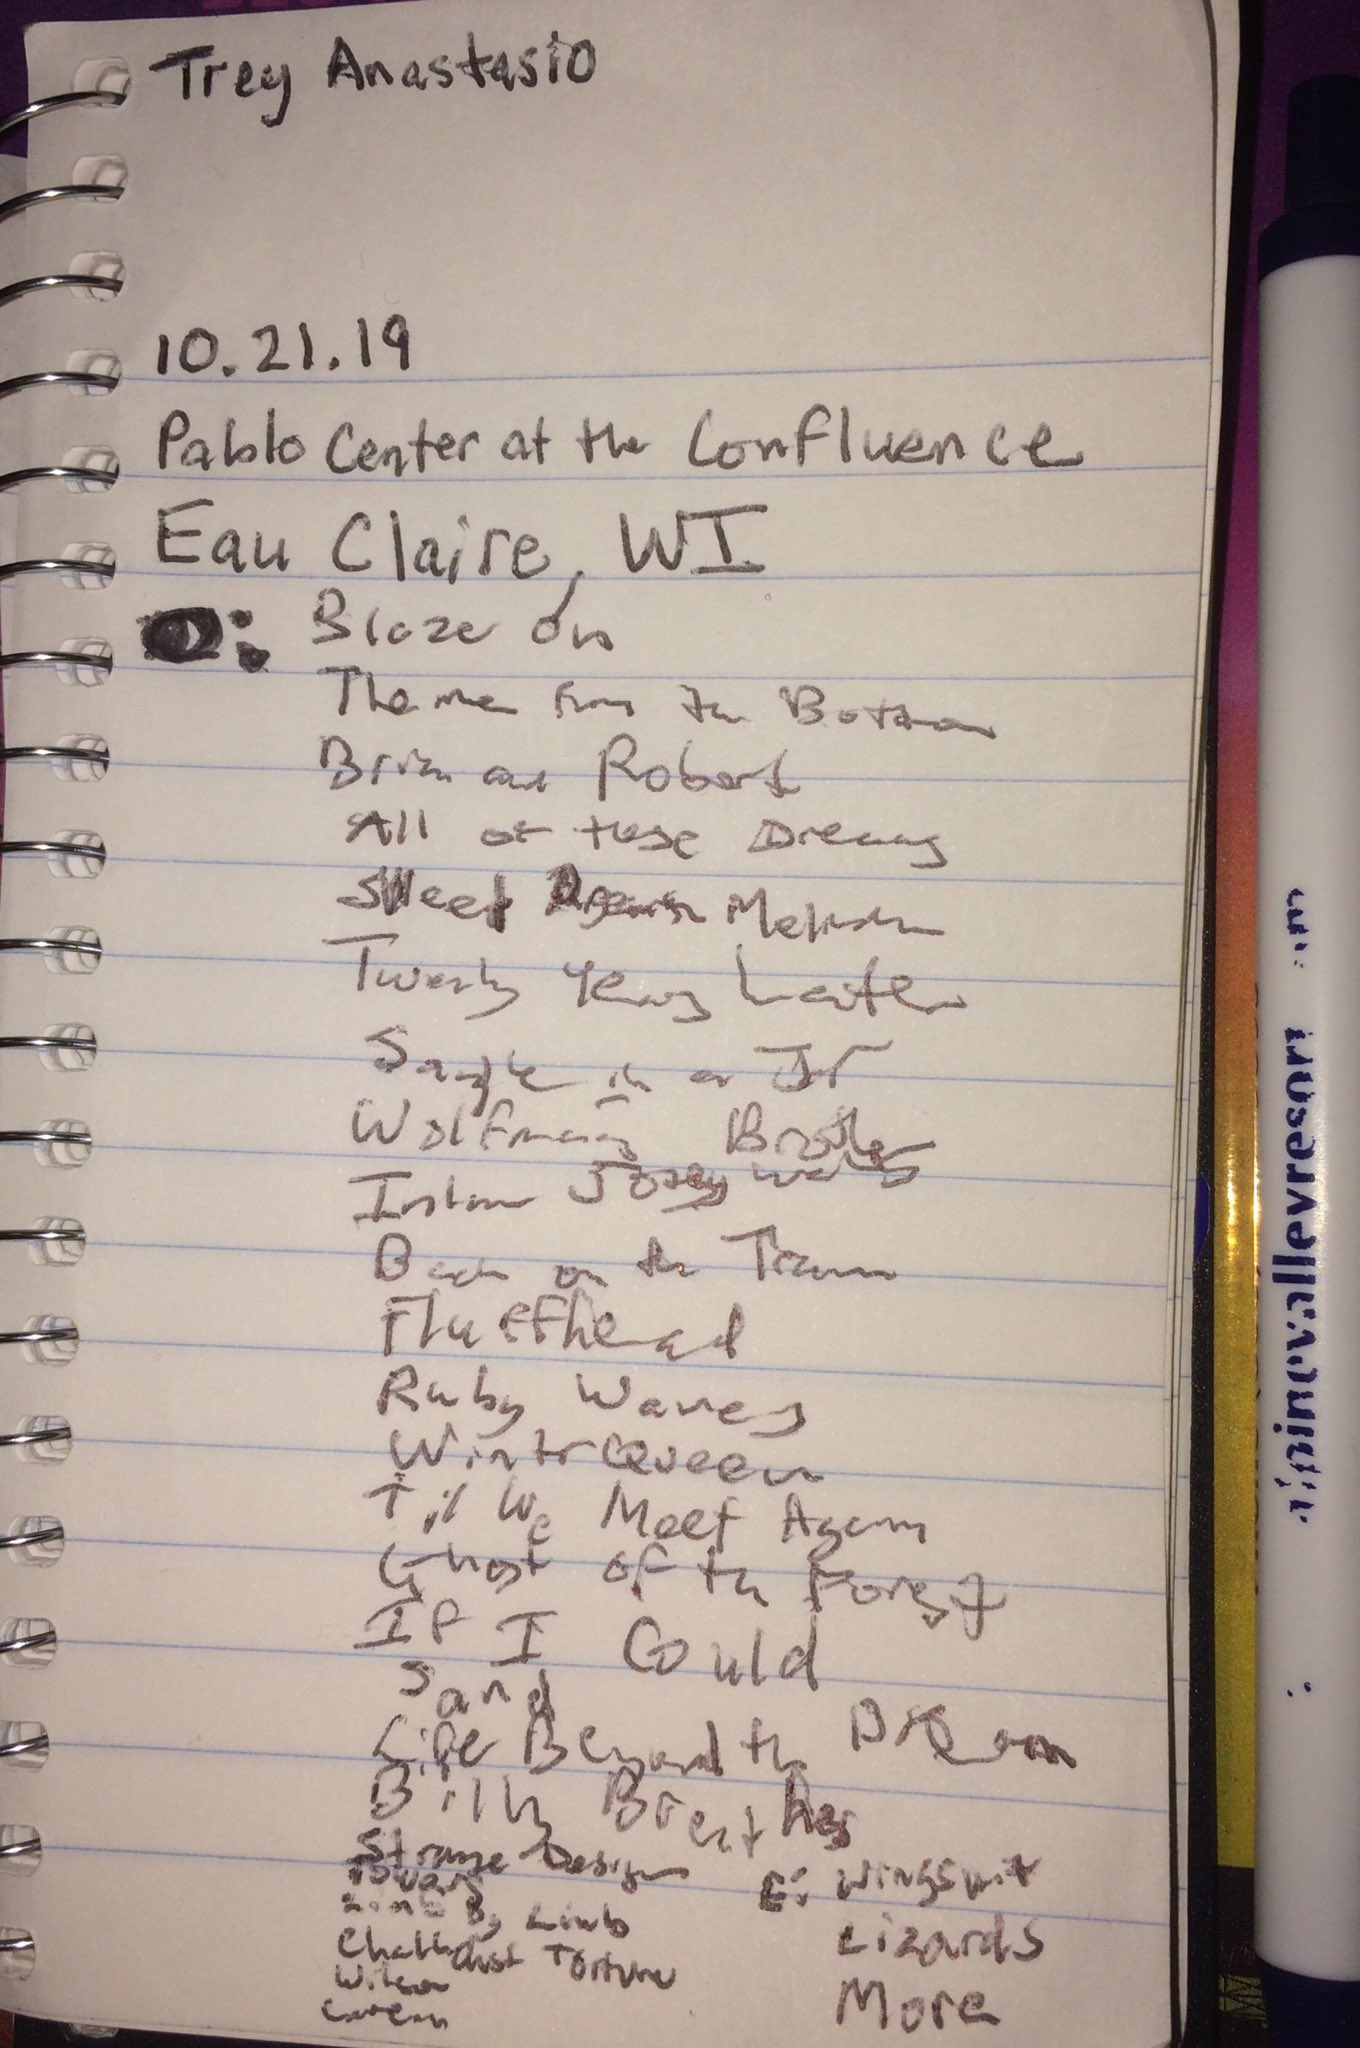 Trey Anastasio
10.21.19
Pablo Center at the Confluence
Eau Claire, WI
Blaze On
Theme from the Bottom
Brian and Robert
All of these Dreams
Sweet Melinda
Twenty Years Later
Sample in a Jar
Wolfmans Brother
Josey Wales
Back on the Train
Fluffhead
Ruby Waves
Winter Queen
Til We Meet Again
Ghost of the Forest
If I Could
Sand
Life Beyond the Dream
Billy Breathes
Strange Design E: Wingsuit
Limb By Limb Lizards
Chalk dust Torture More
Wilson
Cavern